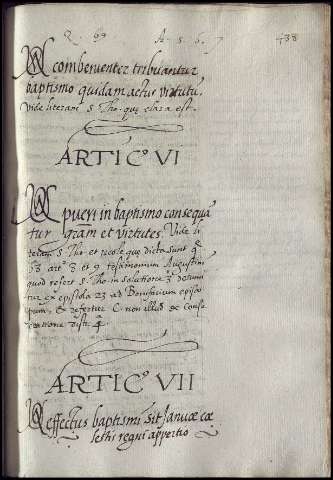 Q. 69 A. 5. 6. 7 438
An convenienter tribuantur
baptismo quidam actus virtutū.
Vide literam S Tho. quę clara est.
ARTICº VI
An pueri in baptismo consequā
tur gratiam et virtutes Vide li
teram S Tho et recole quę dicta sunt q.
68 artº 8 et 9 testimonium Augustini
quod refert S Tho in solutione 3 desumi
tur ex epistola 23 ad Bonifacium episco
pum, & refertur C. non illud de conse
cratione dist. 4.
ARTICº VII
An effectus baptismi sit Ianuæ cæ
lestis regni appertio